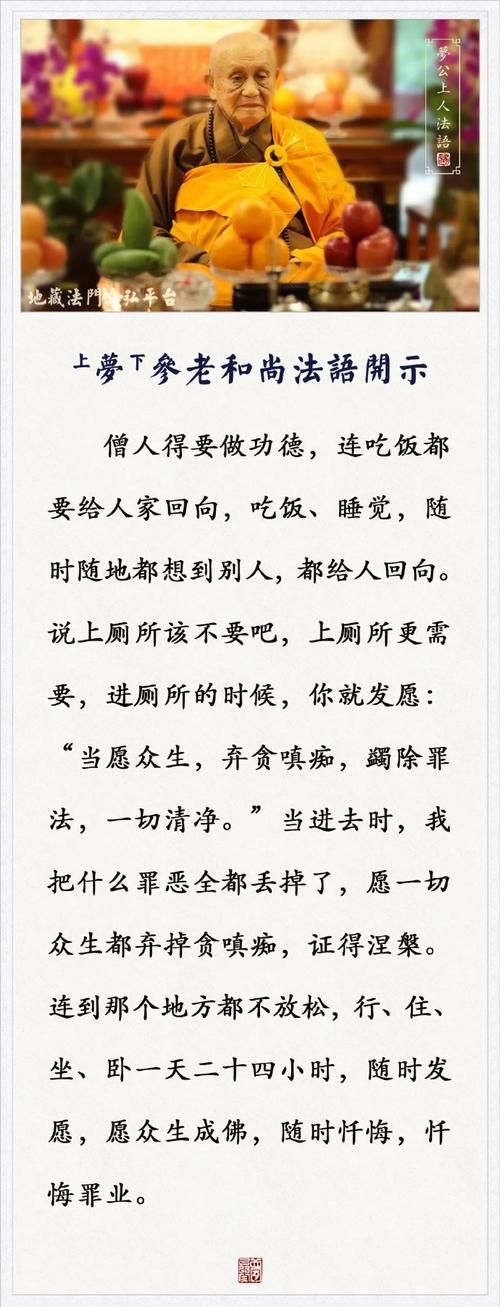 夢公上人法語
地藏法門
弘平台
上夢下參老和尚法語開示
僧人得要做功德，连吃饭都
要给人家回向，吃饭、睡觉，随
时随地都想到别人，都给人回向。
说上厕所该不要吧，上厕所更需
要，进厕所的时候，你就发愿：
“当愿众生，弃贪嗔痴，蠲除罪
法，一切清净。”当进去时，我
把什么罪恶全都丢掉了，愿一切
众生都弃掉贪嗔痴，证得涅槃。
连到那个地方都不放松，行、住、
坐、卧一天二十四小时，随时发
愿，愿众生成佛，随时忏悔，忏
悔罪业。